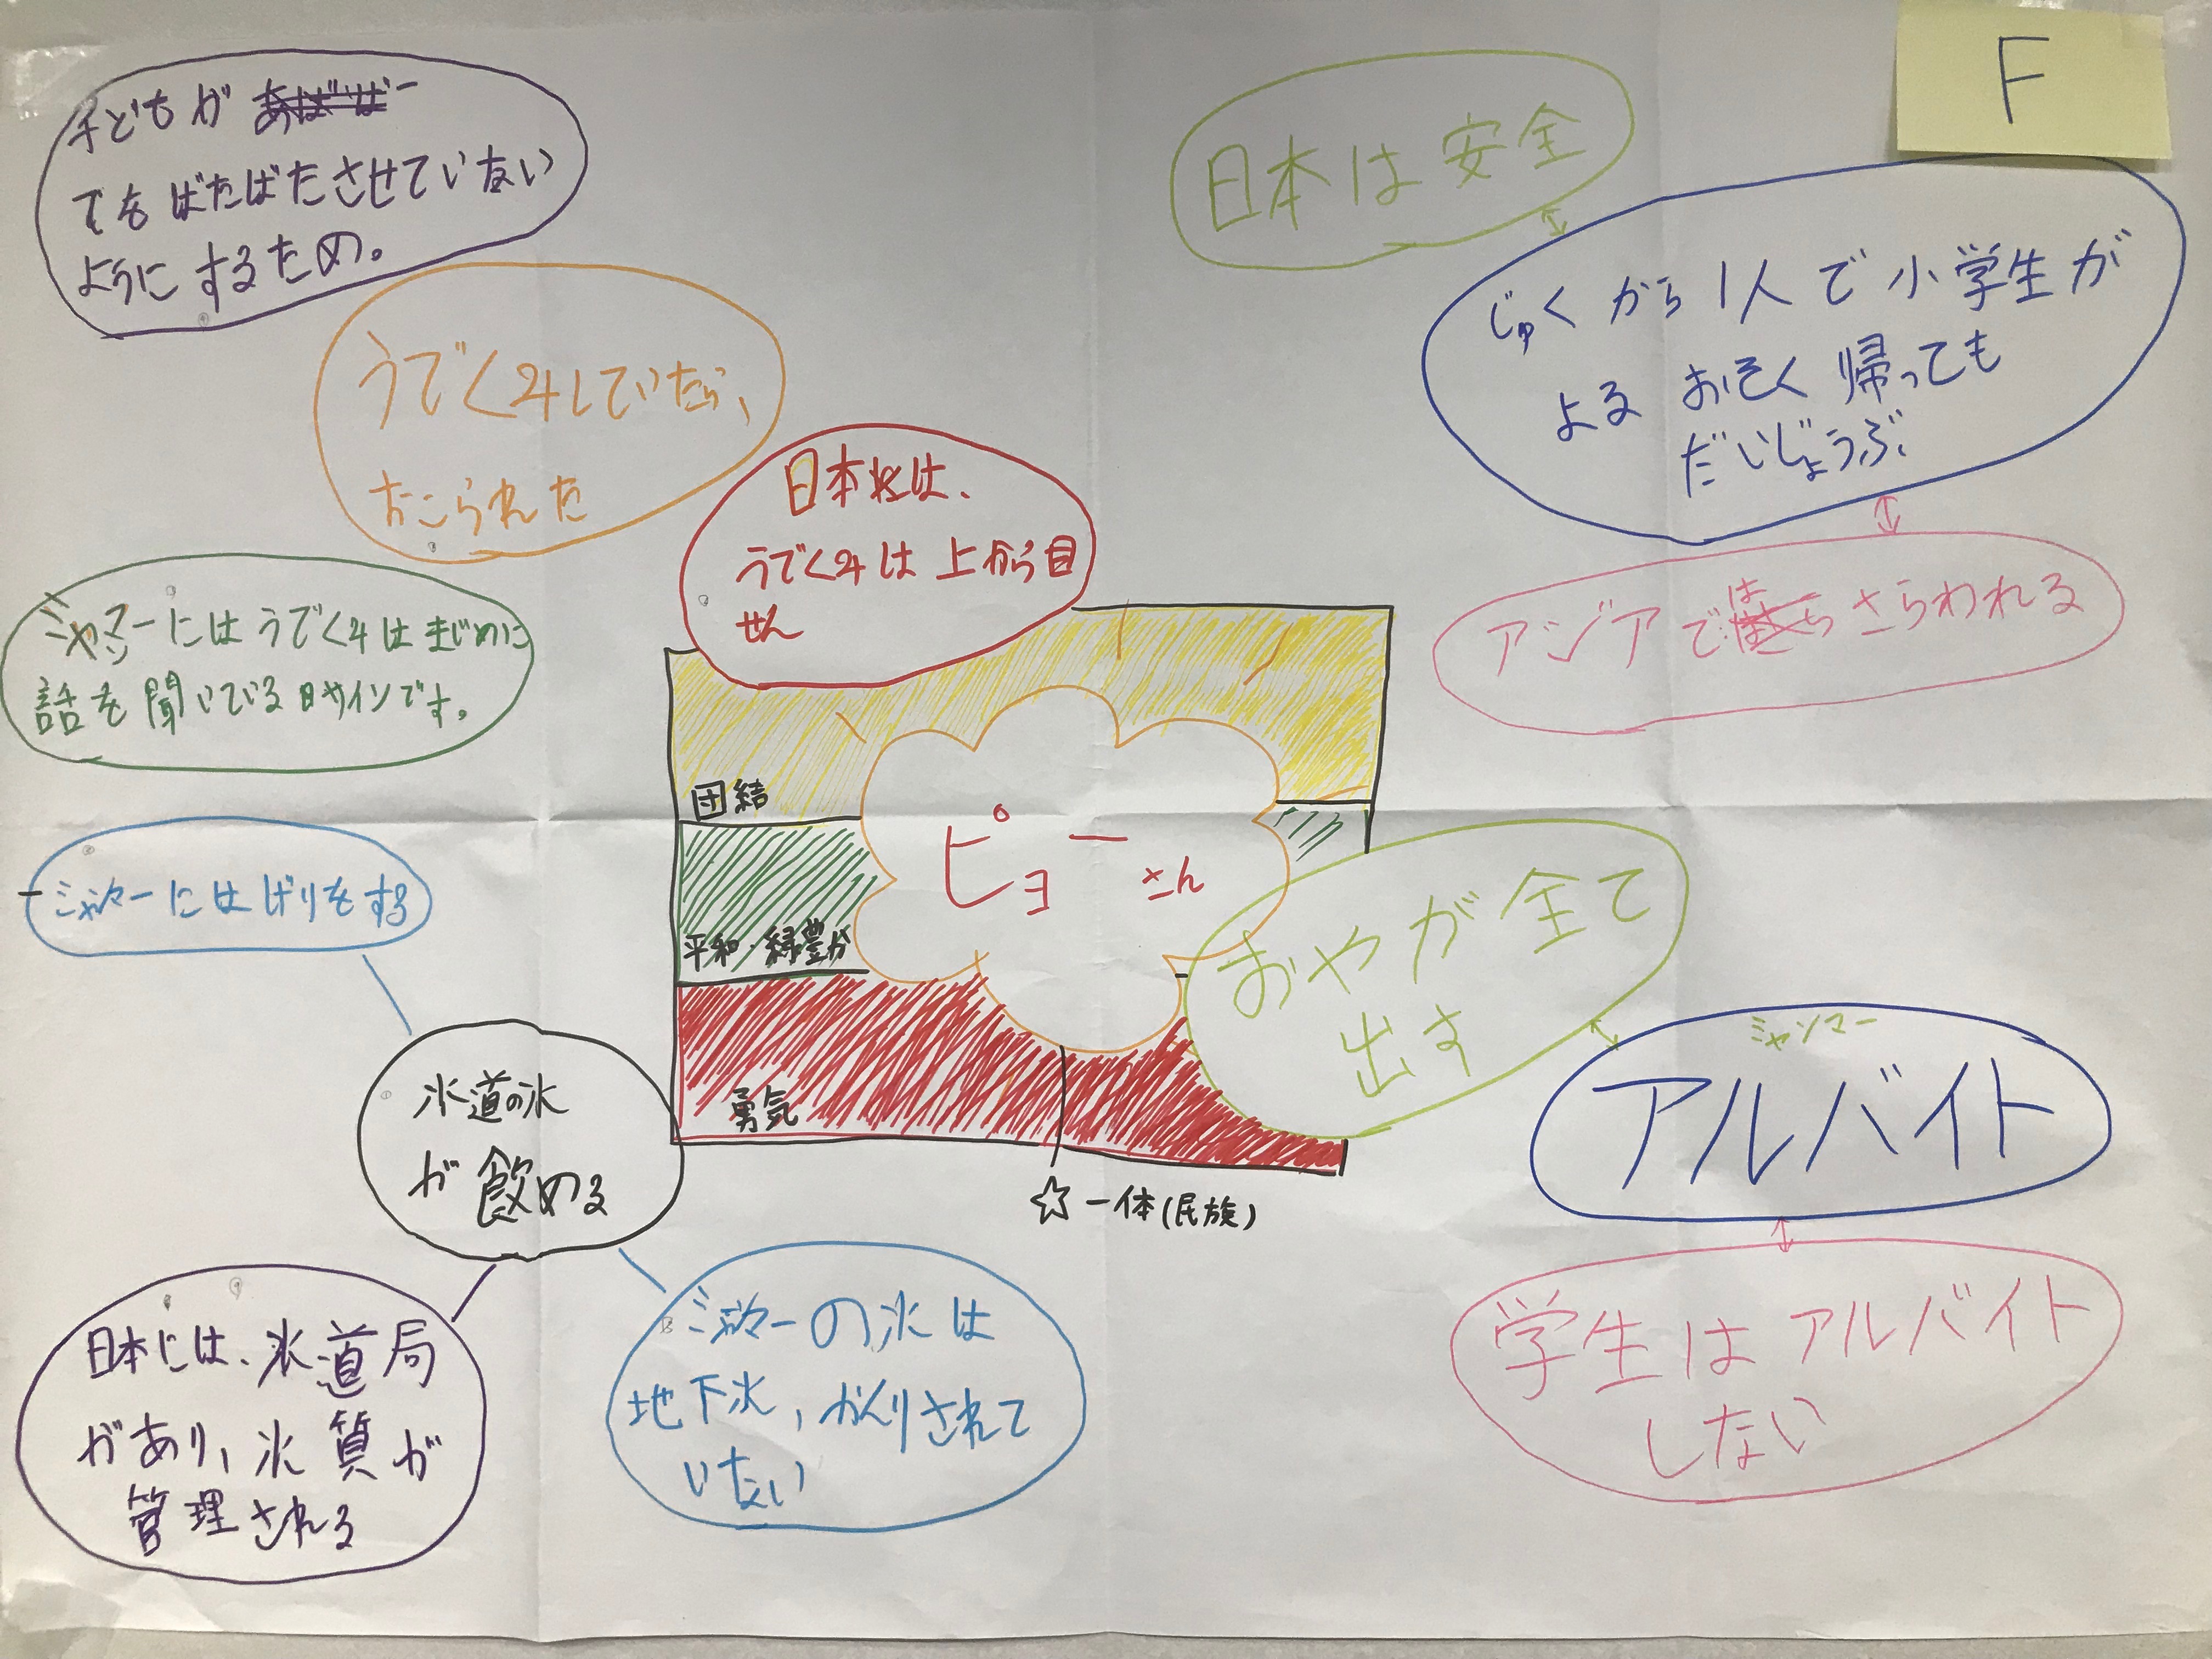 F
子どもが
てをばたばたさせていない
ようにするため。
うでくみしていたら、
おこられた
日本では、
うでくみは上から目
せん
ミャンマーにはうでくみはまじめに
話を聞いているサインです。
ミャンマーにはげりをする
水道の水
が飲める
日本には、水道局
があり、水質が
管理される
ミャンマーの水は
地下水、かんりされて
いない
団結
平和・緑豊か
勇気
ピョーさん
☆一体(民族)
日本は安全
じゅくから1人で小学生が
よるおそく帰っても
だいじょうぶ
アジアではさらわれる
おやが全て
出す
ミャンマー
アルバイト
学生はアルバイト
しない